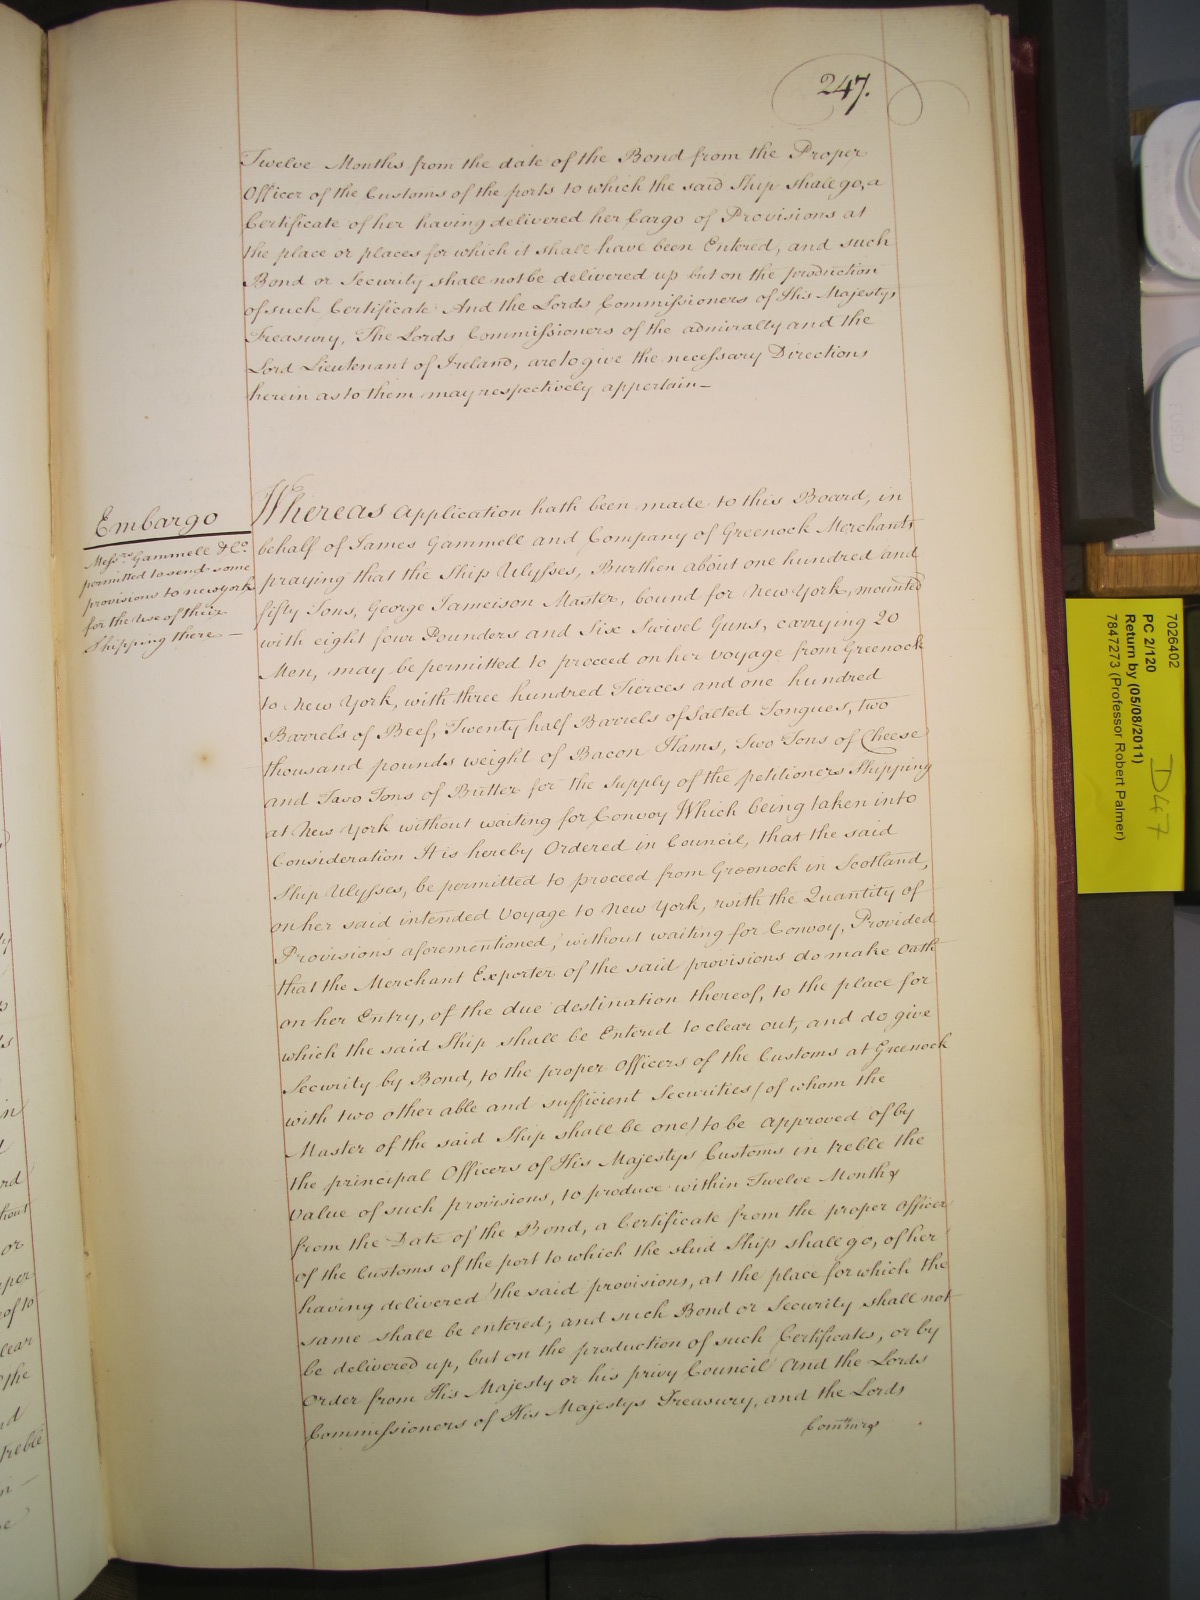 247.
Twelve Months from the date of the Bond from the Proper
Officer of the Customs of the ports to which the said Ship shall go, a
Certificate of her having delivered her Cargo of Provisions at
the place or places for which it shall have been Entered, and such
Bond or Security shall not be delivered up but on the production
of such Certificate And the Lords Commissioners of His Majestys
Treasury, The Lords Commissioners of the admiralty and the
Lord Lieutenant of Ireland, are to give the necessary Directions
herein as to them may respectively appertain—
Embargo
Messrs. Gammell & Co.
permitted to send some
provisions to newyork
for the use of their
Shipping there—
Whereas application hath been made to this Board, in
behalf of James Gammell and Company of Greenock Merchants
praying that the Ship Ulysses, Burthen about one hundred and
fifty Tons, George Jameison Master, bound for New York, mounted
with eight four Pounders and Six Swivel Guns, carrying 20
Men, may be permitted to proceed on her voyage from Greenock
to New York, with three hundred Tierces and one hundred
Barrels of Beef, Twenty half Barrels of Salted Tongues, two
thousand pounds weight of Bacon Hams, Two Tons of Cheese
and Two Tons of Butter for the Supply of the petitioners Shipping
at New York without waiting for Convoy Which being taken into
Consideration It is hereby Ordered in Council, that the said
Ship Ulysses, be permitted to proceed from Greenock in Scotland,
on her said intended Voyage to New York, with the Quantity of
Provisions aforementioned, without waiting for Convoy, Provided
that the Merchant Exporter of the said provisions do make Oath
on her Entry, of the due destination thereof, to the place for
which the said Ship shall be Entered to clear out, and do give
Security by Bond, to the proper Officers of the Customs at Greenock
with two other able and sufficient Securities (of whom the
Master of the said Ship shall be one) to be approved of by
the principal Officers of His Majestys Customs in treble the
value of such provisions, to produce within Twelve Months
from the Date of the Bond, a Certificate from the proper Officer
of the Customs of the port to which the said Ship shall go, of her
having delivered the said provisions, at the place for which the
same shall be entered; and such Bond or Security shall not
be delivered up, but on the production of such Certificate, or by
Order from His Majesty or his privy Council And the Lords
Commissioners of His Majestys Treasury, and the Lords
7026402
PC 2/120
Return by (05/08/2011)
7847273 (Professor Robert Palmer)
D47